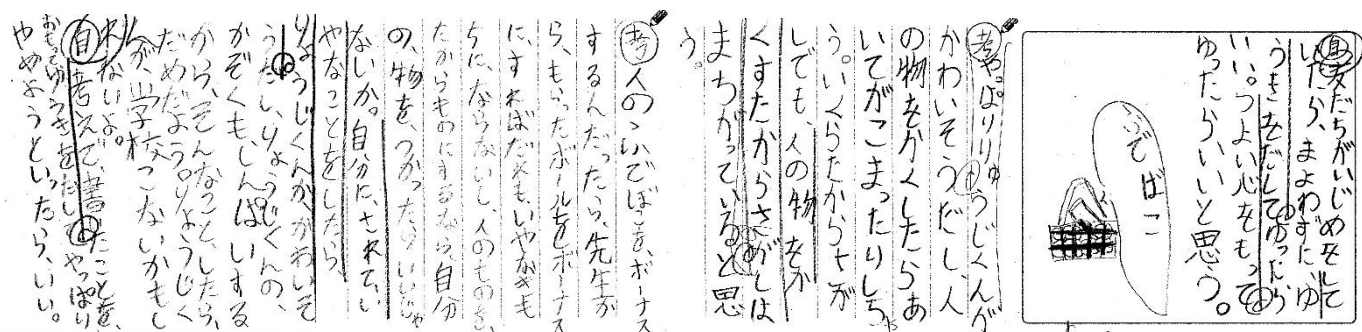 友だちがいじめをして
いたら、まよわずに、ゆ
うきをだしてゆったら
いい。つよい心をもって
ゆったらいいと思う。
ふでばこ
考やっぱりりょうじくんが
かわいそうだし、人
の物をかくしたらあ
いてがこまったりしち
う。いくらたからさが
しでも、人の物をか
くすたからさがしは
まちがっていると思
う。
考人のふでばこを、ボーナス
するんだったら、先生が
ら、もらったボールをボーナス
に、すればだれもいやな気も
ちに、ならないし、人のものを、
たからものにするなら、自分
の、物を、つかったらいいじゃ
ないか。自分に、されて、い
やなことをしたら、
りょうじくんが、かわいそ
うだし、りょうじくんの、
かぞくもしんぱいする
から、そんなこと、したら、
だめだよう。りょうじく
んが、学校、こないかもし
れないよ。
自考えで、書いたことを、
おもってゆうきをだして、やっぱり
やめようといったら、いい。